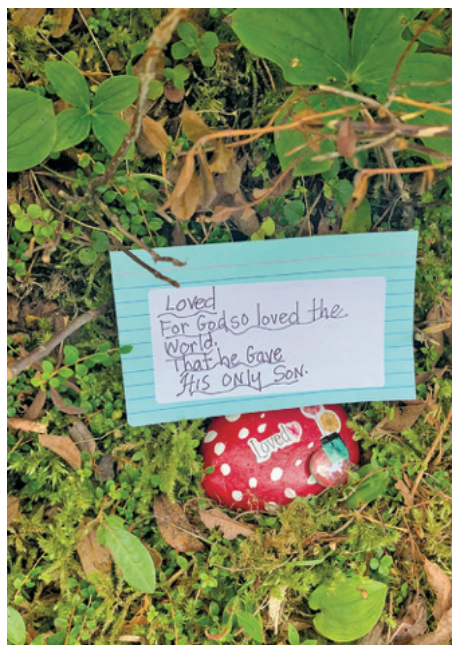 Loved
For God so loved the.
World.
That he Gave
His ONLY SON.
Loved